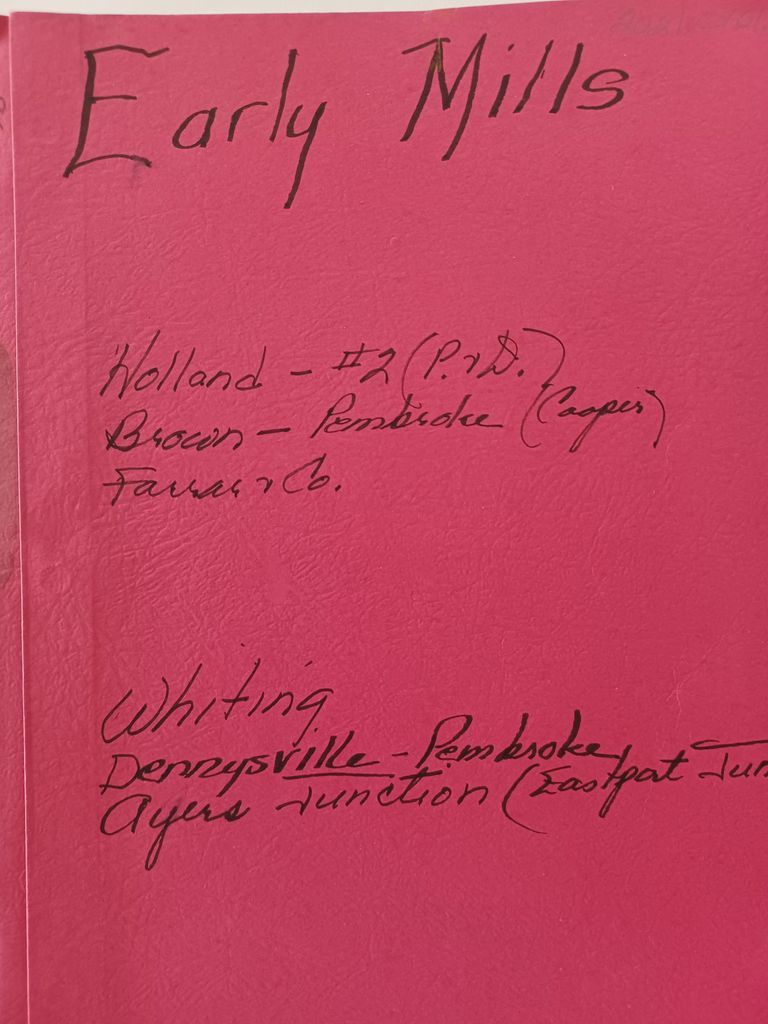 Early Mills
Holland - #2 (P. & D.)
Brown - Pembroke (Cooper)
Farrar & Co.
Whiting
Dennysville - Pembroke
Ayers Junction (Eastport Jun